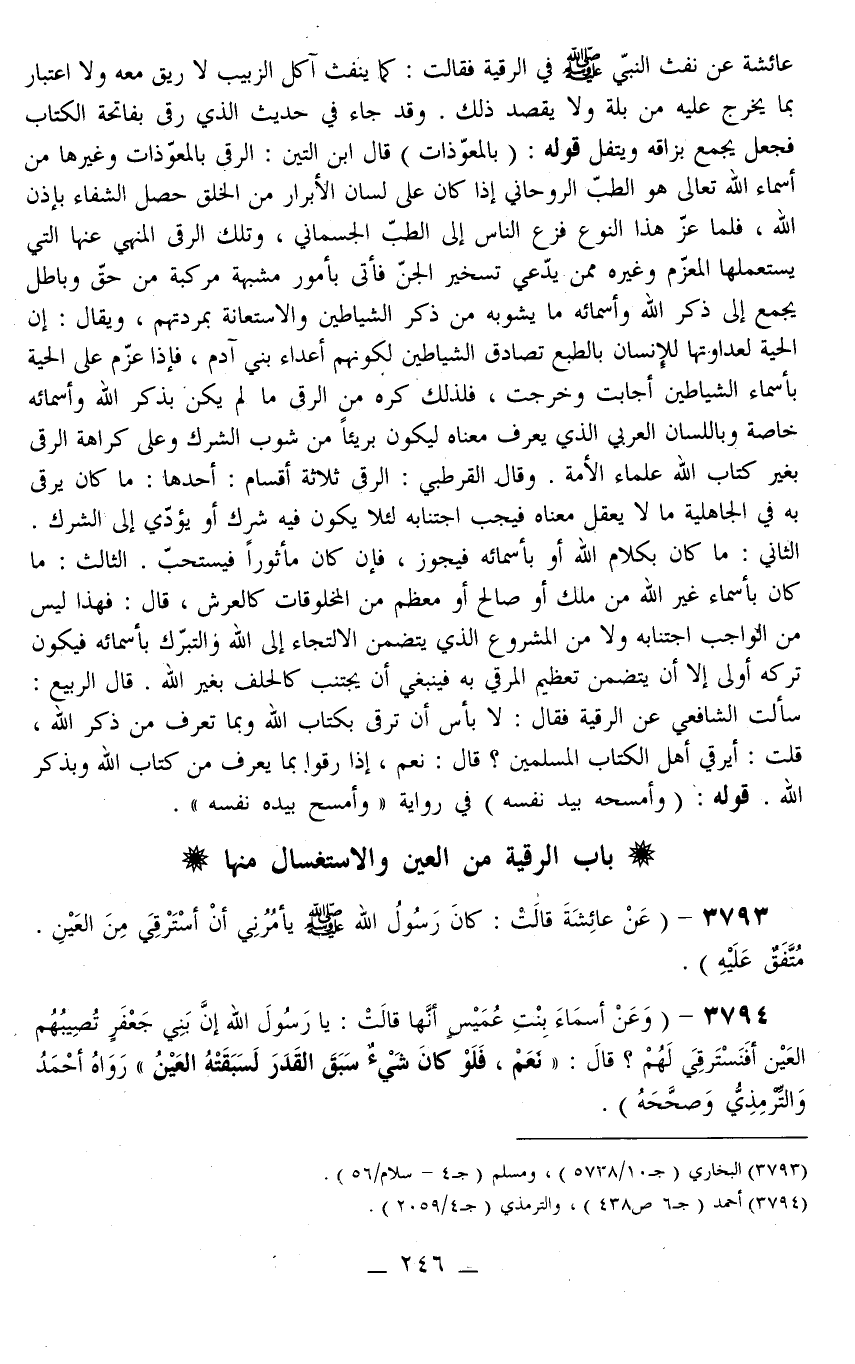 عائشة عن نفث النبيّ ﷺ في الرقية فقالت : كما ينفث آكل الزبيب لا ريق معه ولا اعتبار
بما يخرج عليه من بلة ولا يقصد ذلك . وقد جاء في حديث الذي رقى بفاتحة الكتاب
فجعل يجمع بزاقه ويتفل قوله : ( بالمعوّذات ) قال ابن التين : الرقى بالمعوّذات وغيرها من
أسماء الله تعالى هو الطبّ الروحاني إذا كان على لسان الأبرار من الخلق حصل الشفاء بإذن
الله ، فلما عزّ هذا النوع فزع الناس إلى الطبّ الجسماني ، وتلك الرقى المنهي عنها التي
يستعملها المعزّم وغيره ممن يدّعي تسخير الجنّ فأتى بأمور مشبهة مركبة من حقّ وباطل
يجمع إلى ذكر الله وأسمائه ما يشوبه من ذكر الشياطين والاستعانة بمردتهم ، ويقال : إن
الحية لعداوتها للإنسان بالطبع تصادق الشياطين لكونهم أعداء بني آدم ، فإذا عزّم على الحية
بأسماء الشياطين أجابت وخرجت ، فلذلك كره من الرقى ما لم يكن بذكر الله وأسمائه
خاصة وباللسان العربي الذي يعرف معناه ليكون بريئاً من شوب الشرك وعلى كراهة الرقى
بغير كتاب الله علماء الأمة . وقال القرطبي : الرقى ثلاثة أقسام : أحدها : ما كان يرقى
به في الجاهلية ما لا يعقل معناه فيجب اجتنابه لئلا يكون فيه شرك أو يؤدّي إلى الشرك .
الثاني : ما كان بكلام الله أو بأسمائه فيجوز ، فإن كان مأثوراً فيستحبّ . الثالث : ما
كان بأسماء غير الله من ملك أو صالح أو معظم من المخلوقات كالعرش ، قال : فهذا ليس
من الواجب اجتنابه ولا من المشروع الذي يتضمن الالتجاء إلى الله والتبرّك بأسمائه فيكون
تركه أولى إلا أن يتضمن تعظيم المرقي به فينبغي أن يجتنب كالحلف بغير الله . قال الربيع :
سألت الشافعي عن الرقية فقال : لا بأس أن ترقى بكتاب الله وبما تعرف من ذكر الله ،
قلت : أيرقي أهل الكتاب المسلمين ؟ قال : نعم ، إذا رقوا بما يعرف من كتاب الله وبذكر
الله . قوله : ( وأمسحه بيد نفسه ) في رواية « وأمسح بيده نفسه » .
باب الرقية من العين والاستغسال منها
٣٧٩٣ – ( عَنْ عائِشَةَ قالَتْ : كانَ رَسُولُ الله ﷺ يأمُرُني أنْ أسْتَرْقِي مِنَ العَيْنِ .
مُتَّفَقٌ عَلَيْهِ ) .
٣٧٩٤ – ( وَعَنْ أسمَاءَ بِنْتِ عُمَيْسٍ أنَّها قالَتْ : يا رَسُولَ الله إنَّ بَنِي جَعْفَرٍ تُصِيبُهُم
العَيْن أفَنَسْتَرقِي لَهُمْ ؟ قالَ : « نَعَمْ ، فَلَوْ كانَ شَيْءٌ سَبَقَ القَدَرَ لَسَبَقَتْهُ العَيْنُ » رَوَاهُ أحْمَدُ
وَالتِّرْمِذِيُّ وَصحَّحَهُ ) .
(٣٧٩٣) البخاري ( جـ١٠/ ٥٧٣٨ ) ، ومسلم ( جـ٤ – سلام/٥٦ ) .
(٣٧٩٤) أحمد ( جـ٦ ص٤٣٨ ) ، والترمذي ( جـ٤/ ٢٠٥٩ ) .
– ٢٤٦ –